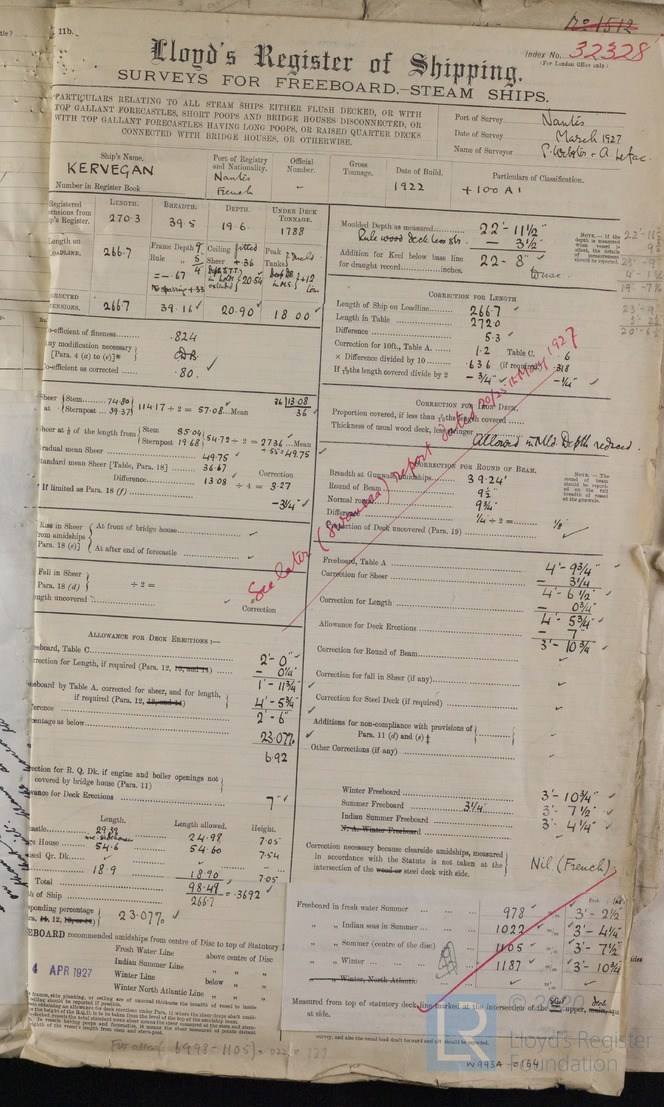 11b.
No 1512
Index No. 32328
(For London Office only)
Lloyd's Register of Shipping.
SURVEYS FOR FREEBOARD.—STEAM SHIPS.
PARTICULARS RELATING TO ALL STEAM SHIPS EITHER FLUSH DECKED, OR WITH
TOP GALLANT FORECASTLES, SHORT POOPS AND BRIDGE HOUSES DISCONNECTED, OR
WITH TOP GALLANT FORECASTLES HAVING LONG POOPS, OR RAISED QUARTER DECKS
CONNECTED WITH BRIDGE HOUSES, OR OTHERWISE.
Port of Survey Nantes
Date of Survey March 1927
Name of Surveyor
Ship's Name. Port of Registry and Nationality. Official Number. Gross Tonnage. Date of Build. Particulars of Classification.
KERVEGAN Nantes French 1922 +100 A1
Number in Register Book
Registered LENGTH. BREADTH. DEPTH. UNDER DECK TONNAGE.
270.3 39.5 19.6 1788
Length on 266.7 Frame Depth 9 Ceiling fitted Peak Tanks
Rule 5 Sheer + .36
= -.67 20.54 +12
266.7 39.16 20.90 1800
Moulded Depth as measured 22'-11½"
- 3½"
Addition for Keel below base line for draught record inches. 22-8"
NOTE.—If the
CORRECTION FOR LENGTH
Length of Ship on Loadline 266.7
Length in Table 272.0
Difference 5.3
Correction for 10ft., Table A. 1.2 Table C. .6
× Difference divided by 10 .636 (if required) .318
If 6/10ths length covered divide by 2 - ¾" - ¼"
-efficient of fineness .824
any modification necessary
[Para. 4 (a) to (e)]*
-efficient as corrected .80
Sheer at Stem 74.80
Sternpost 39.37 114.17 ÷ 2 = 57.08 Mean
36 | 13.08
36
Sheer at ⅛ of the length from Stem 35.04
Sternpost 19.68 54.72 ÷ 2 = 27.36 Mean
÷ .55 = 49.75
Gradual mean Sheer 49.75
Standard mean Sheer [Table, Para. 18] 36.67 Correction
Difference 13.08 ÷ 4 = 3.27
If limited as Para. 18 (f) -3¼"
Proportion covered, if less than
Thickness of usual wood deck, less stringer
Allowed in Mld. Depth reduced.
CORRECTION FOR ROUND OF BEAM.
Breadth at Gunwale amidships 39.24'
Round of Beam 9½"
Normal round 9¾"
Difference ¼ ÷ 2 = ⅛
Proportion of Deck uncovered (Para. 19)
See later (Swansea) report dated 20/25th May 1927
Rise in Sheer from amidships Para. 18 (e)] At front of bridge house
At after end of forecastle
Fall in Sheer
Para. 18 (d) ÷ 2 =
length uncovered Correction
Freeboard, Table A 4'-9¾"
Correction for Sheer - 3¼
4'-6½"
Correction for Length - 0¾
4'-5¾
Allowance for Deck Erections - 7"
3'-10¾
Correction for Round of Beam
Correction for fall in Sheer (if any)
Correction for Steel Deck (if required)
Additions for non-compliance with provisions of Para. 11 (d) and (e) ‡
Other Corrections (if any)
ALLOWANCE FOR DECK ERECTIONS:—
Freeboard, Table C 2'-0"
Correction for Length, if required (Para. 12, 13, and 14) - 0¼
1'-11¾
Freeboard by Table A, corrected for sheer, and for length,
if required (Para. 12, 13, and 14) 4'-5¾
Difference 2'-6"
Percentage as below 23.07%
6.92
Correction for R. Q. Dk. if engine and boiler openings not
covered by bridge house (Para. 11)
Allowance for Deck Erections 7"
Winter Freeboard 3'-10¾
Summer Freeboard 3¼" 3'-7½
Indian Summer Freeboard 3'-4¼
N. A. Winter Freeboard
Correction necessary because clearside amidships, measured
in accordance with the Statute is not taken at the
intersection of the wood or steel deck with side. Nil (French)
Length. Length allowed. Height.
29.39 24.98 7.05
House 54.6 54.60 7.54
Qr. Dk.
18.9 18.90 7.05
Total 98.49
of Ship 266.7 = .3692
percentage
23.07%
FREEBOARD recommended amidships from centre of Disc to top of Statutory
Fresh Water Line above centre of Disc
Indian Summer Line
Winter Line below
Winter North Atlantic Line
4 APR 1927
Freeboard in fresh water Summer 978 3'-2½"
" " Indian seas in Summer 1022 3'-4¼
" " Summer (centre of the disc) 1105 3'-7½
" " Winter 1187 3'-10¾
" " Winter, North Atlantic
Measured from top of statutory deck line marked at the intersection of the upper,
at side.
W993A-0164
© 2020
LR
Lloyd's Register
Foundation